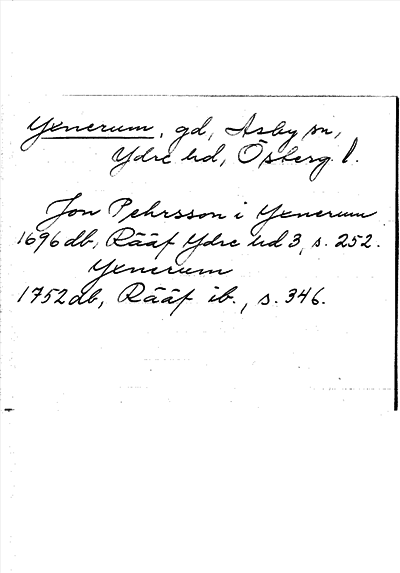 Yxnerum, gd, Asby sn,
Ydre hd, Österg. l.
Jon Pehrsson i Yxnerum
1696 db, Rääf Ydre hd 3, s. 252.
Yxnerum
1752 db, Rääf ib., s. 346.